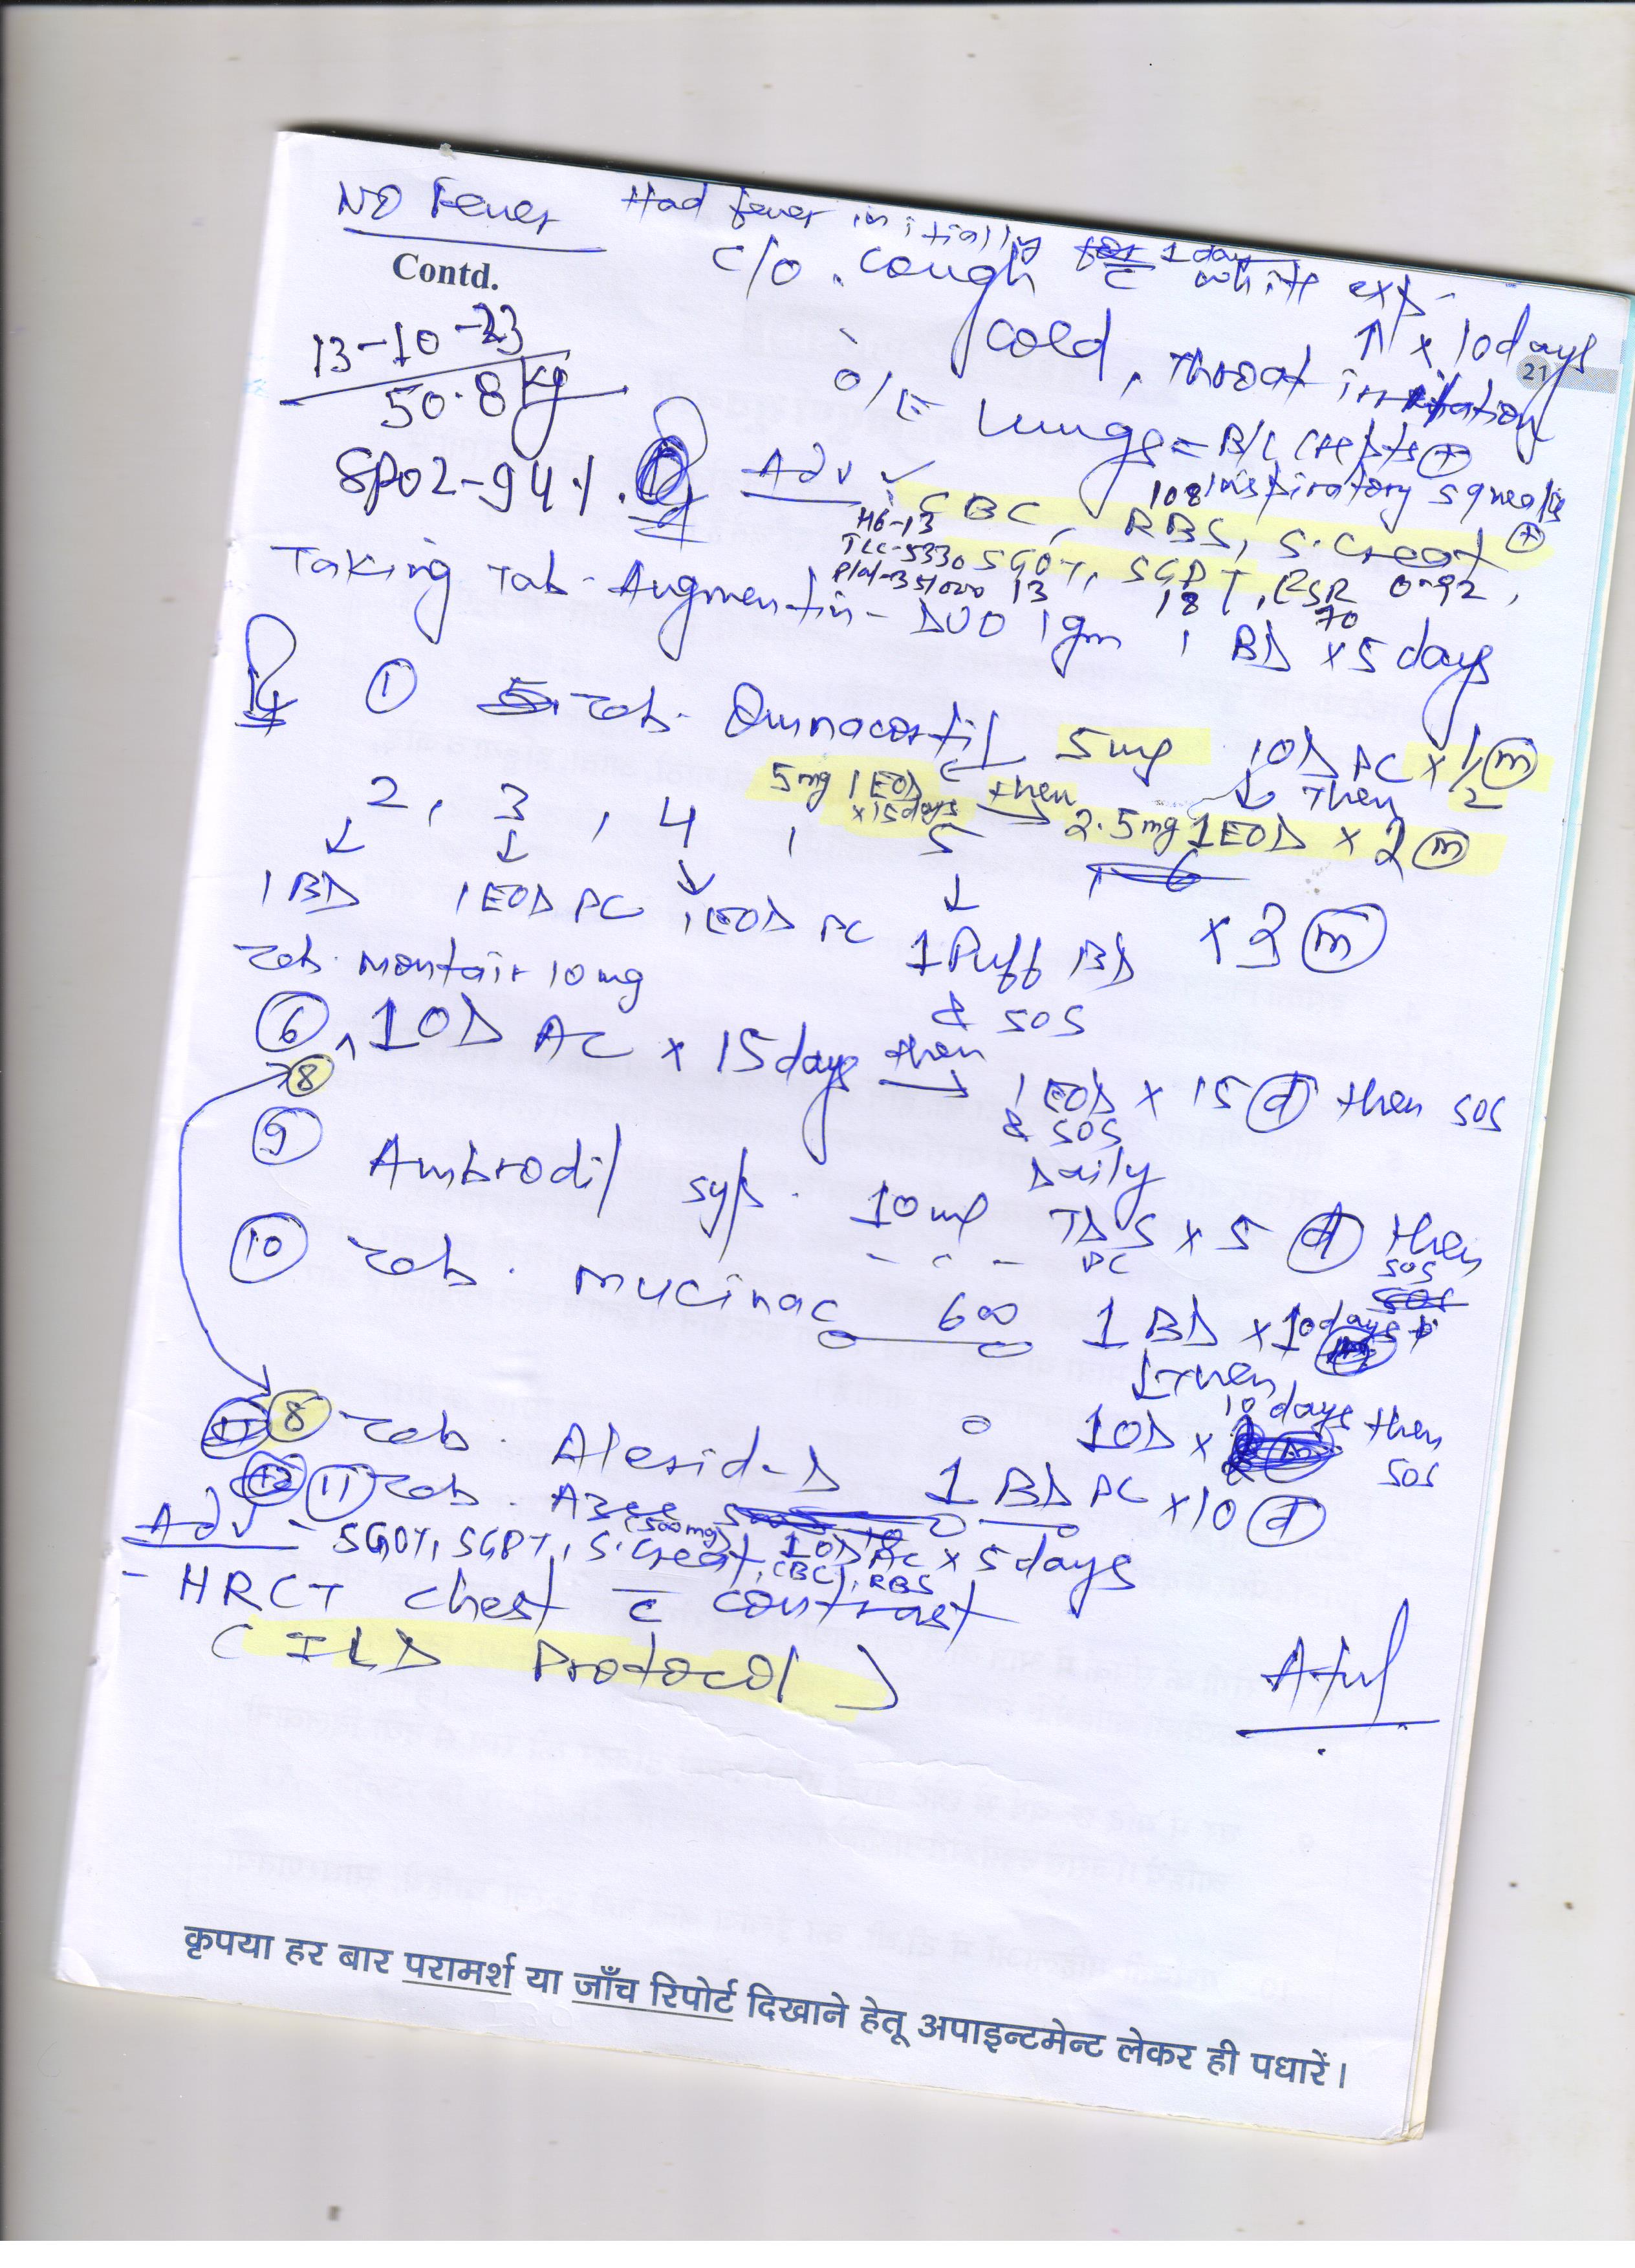 NO Fever Had fever initially for 1 day
Contd. C/O. Cough c̄ white exp.
↑ x 10 days
21
13-10-23 Cold, Throat irritation
50.8 kg O/E Lungs = B/L Crepts ⊕
Inspiratory squeaks ⊕
SPO2-94%. Adv ✓ CBC, RBS, S.Creat
108
Hb-13
TLC-5330 SGOT, SGPT, ESR 0.92,
Plat-351000 13 18 70
Taking Tab- Augmentin-DUO 1gm 1 BD x 5 days
① Tab. Omnacortil 5mg 1OD PC x 1/2 (m)
5mg 1 EOD x 15 days then → ↓ Then 2.5mg 1EOD x 2 (m)
2, 3, 4, 5
↓ ↓ ↓ ↓
1 BD 1 EOD PC 1 EOD PC 1 Puff BD x 3 (m)
& SOS
Tab. Montair 10 mg
⑥ ^ 1OD AC x 15 days then → 1 EOD x 15 (d) then SOS
& SOS
Daily
⑧
⑨ Ambrodil syp. 10ml TDS x 5 (d) then
PC SOS
⑩ Tab. Mucinac 600 1 BD x 10 days
↓ Then
1OD x 10 days then
SOS
⑧ Tab. Alerid-D 1 BD PC x 10 (d)
⑪ Tab. Azee (500mg) 1OD AC x 5 days
Adv - SGOT, SGPT, S.Creat, CBC, RBS
- HRCT Chest c̄ contrast
(ILD Protocol)
Atul
कृपया हर बार परामर्श या जाँच रिपोर्ट दिखाने हेतू अपाइन्टमेन्ट लेकर ही पधारें।